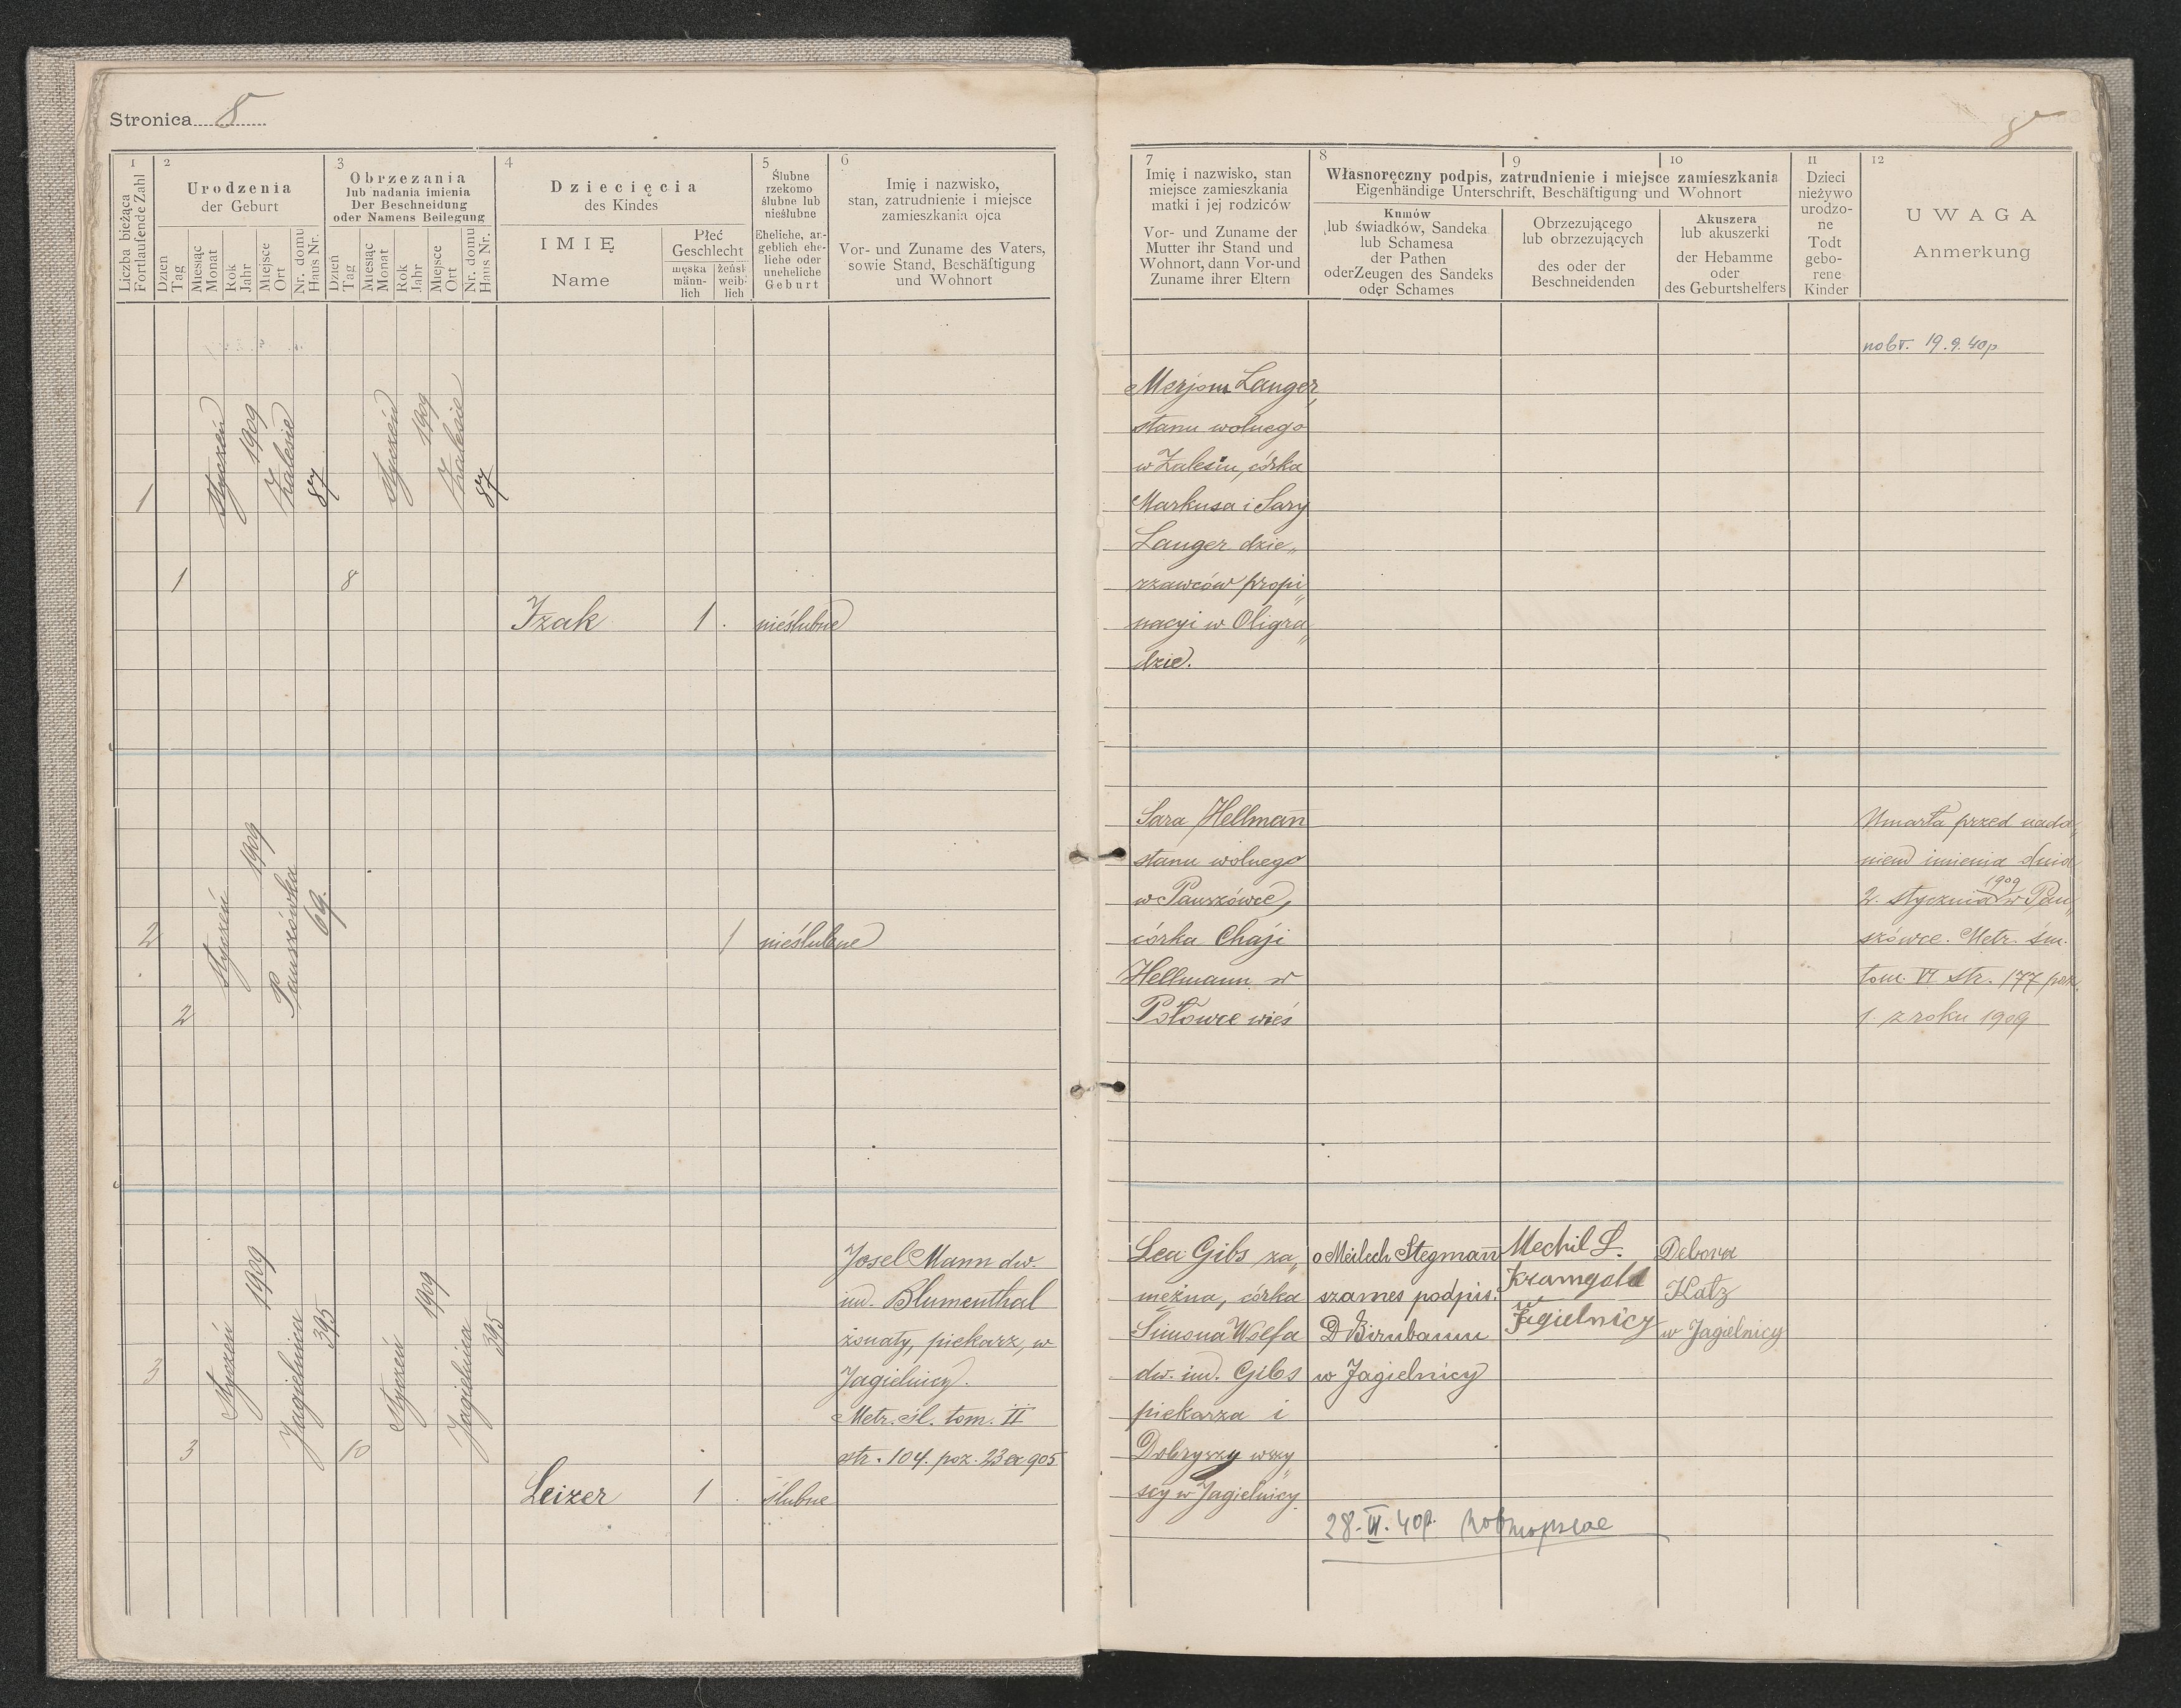 Stronica 8
8
1
Liczba bieżąca
Fortlaufende Zahl
2
Urodzenia
der Geburt
Dzień
Tag
Miesiąc
Monat
Rok
Jahr
Miejsce
Ort
Nr. domu
Haus Nr.
3
Obrzezania
lub nadania imienia
Der Beschneidung
oder Namens Beilegung
Dzień
Tag
Miesiąc
Monat
Rok
Jahr
Miejsce
Ort
Nr. domu
Haus Nr.
4
Dziecięcia
des Kindes
IMIĘ
Name
Płeć
Geschlecht
męska
männ-
lich
żeńsk
weib-
lich
5
Ślubne
rzekomo
ślubne lub
nieślubne
Eheliche, an-
geblich ehe-
liche oder
uneheliche
Geburt
6
Imię i nazwisko,
stan, zatrudnienie i miejsce
zamieszkania ojca
Vor- und Zuname des Vaters,
sowie Stand, Beschäftigung
und Wohnort
7
Imię i nazwisko, stan
miejsce zamieszkania
matki i jej rodziców
Vor- und Zuname der
Mutter ihr Stand und
Wohnort, dann Vor-und
Zuname ihrer Eltern
8
9
10
Własnoręczny podpis, zatrudnienie i miejsce zamieszkania
Eigenhändige Unterschrift, Beschäftigung und Wohnort
Kumów
lub świadków, Sandeka
lub Schamesa
der Pathen
oder Zeugen des Sandeks
oder Schames
Obrzezującego
lub obrzezujących
des oder der
Beschneidenden
Akuszera
lub akuszerki
der Hebamme
oder
des Geburtshelfers
11
Dzieci
nieżywo
urodzo-
ne
Todt
gebo-
rene
Kinder
12
UWAGA
Anmerkung
1
1
styczeń
1909
Zalesie
87
8
styczeń
1909
Zalesie
87
Izak
1
nieślubne
Merjem Langer,
stanu wolnego
w Zalesiu, córka
Markusa i Sary
Langer dzie„
rzawców propi„
nacyi w Oligra„
dzie.
19.9.40р
2
2
styczeń
1909
Pauszówka
69.
1
nieślubne
Sara Hellmann
stanu wolnego
w Pauszówce,
córka Chaji
Hellmann w
Połowce wieś
Umarła przed nada„
niem imienia dnia
2. stycznia 1909 w Pau„
szówce. Metr. śm.
tom. VI str. 177 poz.
1. z roku 1909
3
3
styczeń
1909
Jagielnica
395
10
styczeń
1909
Jagielnica
395
Leizer
1
ślubne
Josel Mann dw.
im. Blumenthal
żonaty, piekarz, w
Jagielnicy.
Metr. śl. tom. II
str. 104. poz. 23 ex 905
Lea Gibs za„
mężna, córka
Simona Wolfa
dw. im. Gibs
piekarza i
Dobryszy wszy„
scy w Jagielnicy.
o Meilech Stegmann
szames podpis.
D Birnbaum
w Jagielnicy
Mechil L.
Kramgold
w
Jagielnicy
Debora
Katz
w Jagielnicy
28.VI.40р. повторное